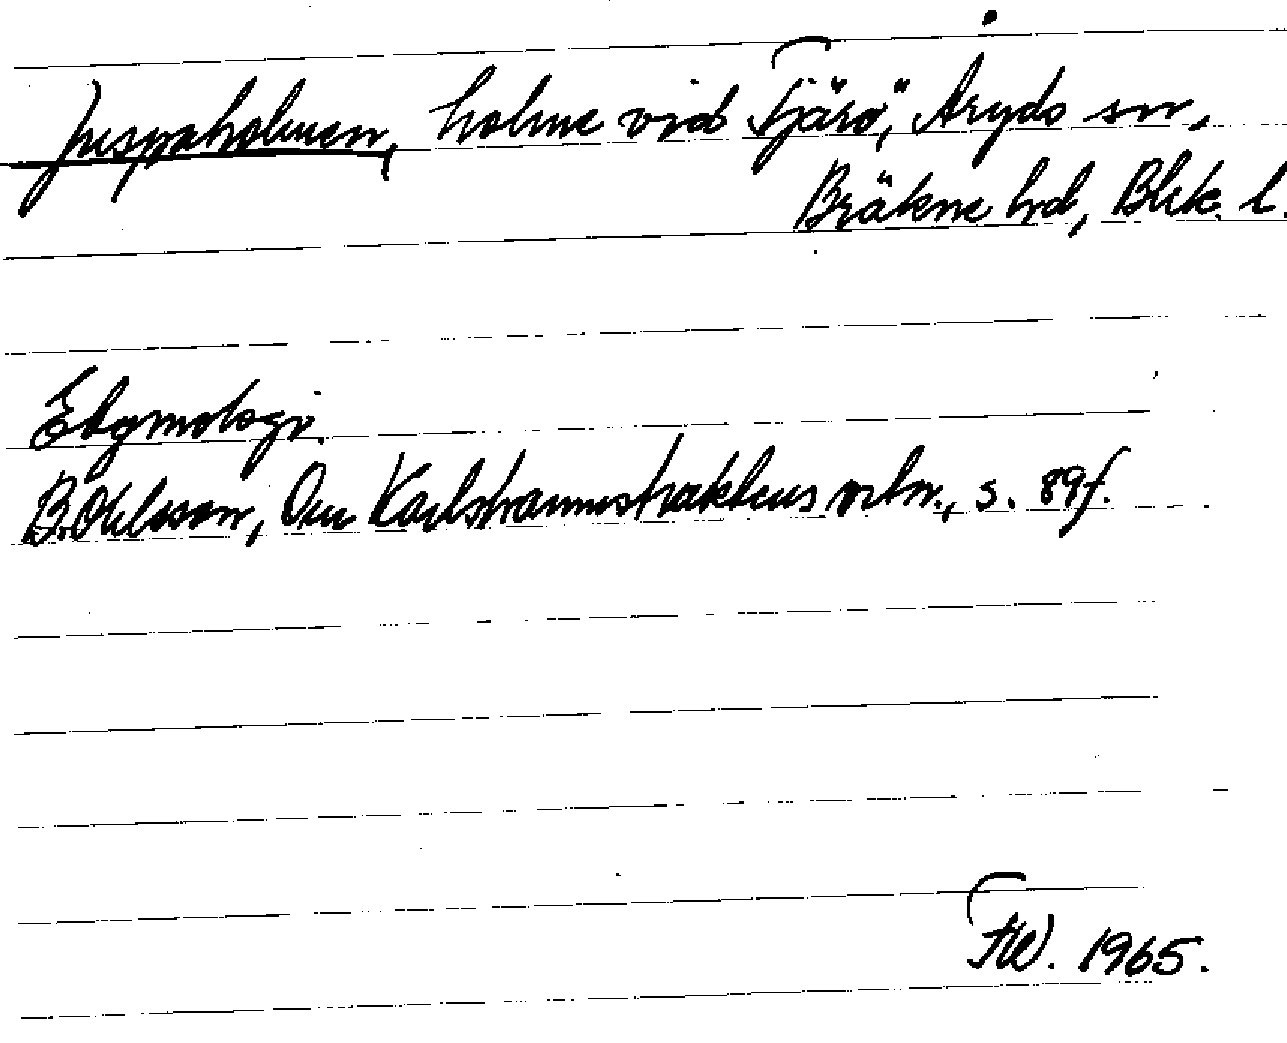 Jusppaholmen, holme vid Tjärö, Åryds sn,
Bräkne hd, Blek. l.
Etymologi.
B. Ohlsson, Om Karlshamnstraktens ortn., s. 89 f.
FW. 1965.